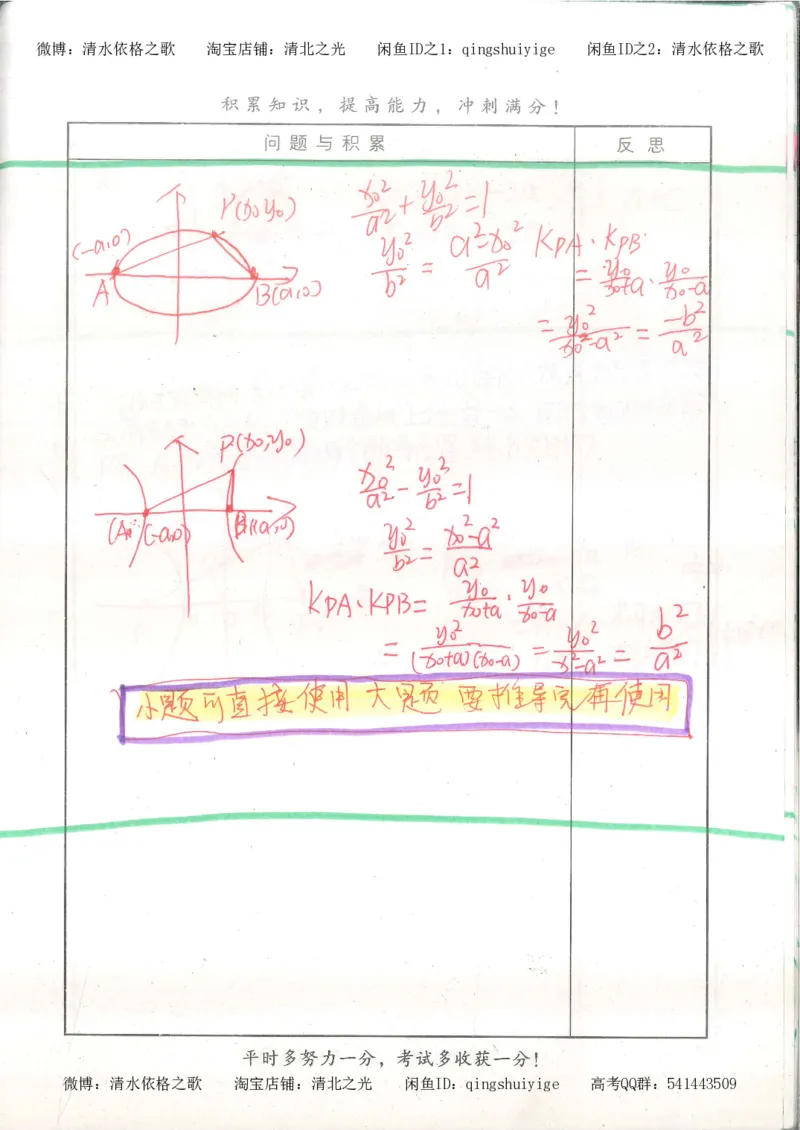 微博：清水依格之歌 淘宝店铺：清北之光 闲鱼ID之1：qingshuiyige 闲鱼ID之2：清水依格之歌
积累知识，提高能力，冲刺满分！
问题与积累 反思
P(x₀y₀)
(-a,0)
A
B(a,0)
x₀²/a² + y₀²/b² = 1
y₀²/b² = (a²-x₀²)/a²
KPA·KPB
= y₀/(x₀+a) · y₀/(x₀-a)
= y₀²/(x₀²-a²) = -b²/a²
P(x₀,y₀)
(A (-a,0)
B(a,0)
x₀²/a² - y₀²/b² = 1
y₀²/b² = (x₀²-a²)/a²
KPA·KPB = y₀/(x₀+a) · y₀/(x₀-a)
= y₀²/((x₀+a)(x₀-a)) = y₀²/(x²-a²) = b²/a²
小题可直接使用 大题 要推导完再使用
平时多努力一分，考试多收获一分！
微博：清水依格之歌 淘宝店铺：清北之光 闲鱼ID：qingshuiyige 高考QQ群：541443509